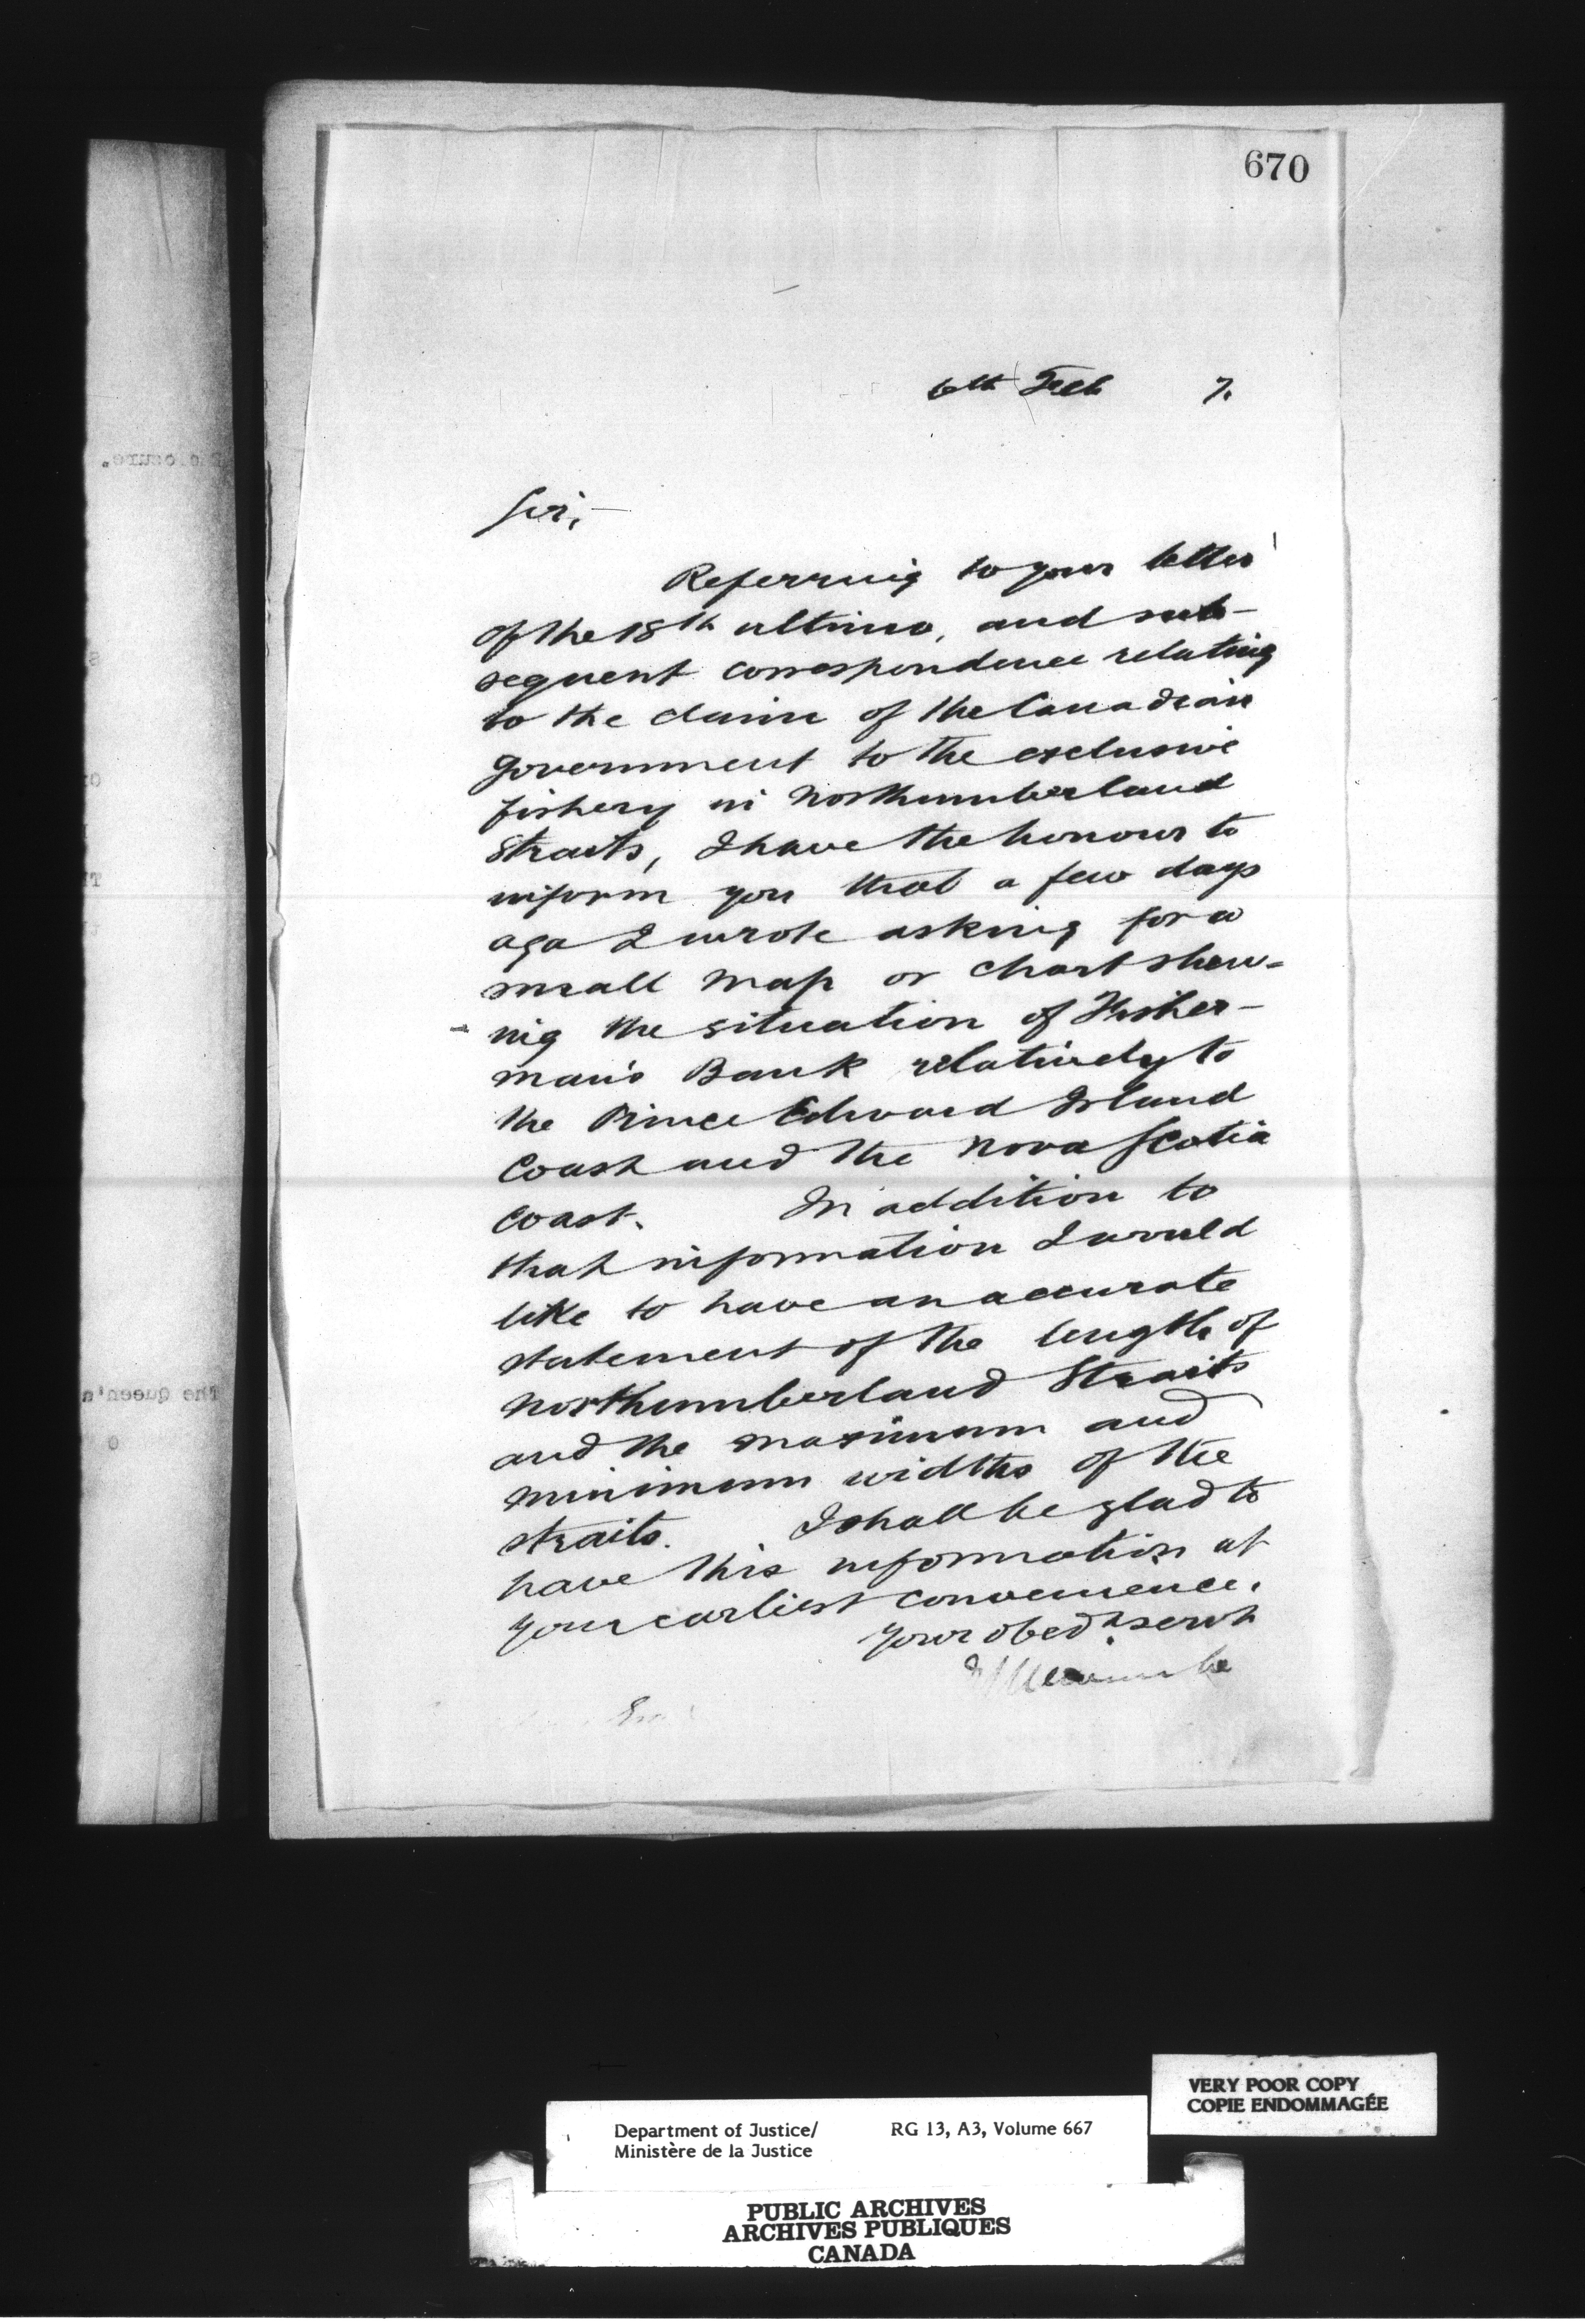 670
6th Feb 7.
Sir,—
Referring to your letter
of the 18th ultimo, and sub-
sequent correspondence relating
to the claim of the Canadian
Government to the exclusive
fishery in Northumberland
Straits, I have the honour to
inform you that a few days
ago I wrote asking for a
small map or chart shew-
ing the situation of Fisher-
man's Bank relatively to
the Prince Edward Island
Coast and the Nova Scotia
coast. In addition to
that information I would
like to have an accurate
statement of the length of
Northumberland Straits
and the maximum and
minimum widths of the
straits. I shall be glad to
have this information at
your earliest convenience.
Your obedt servt
VERY POOR COPY
COPIE ENDOMMAGÉE
Department of Justice/ RG 13, A3, Volume 667
Ministère de la Justice
PUBLIC ARCHIVES
ARCHIVES PUBLIQUES
CANADA